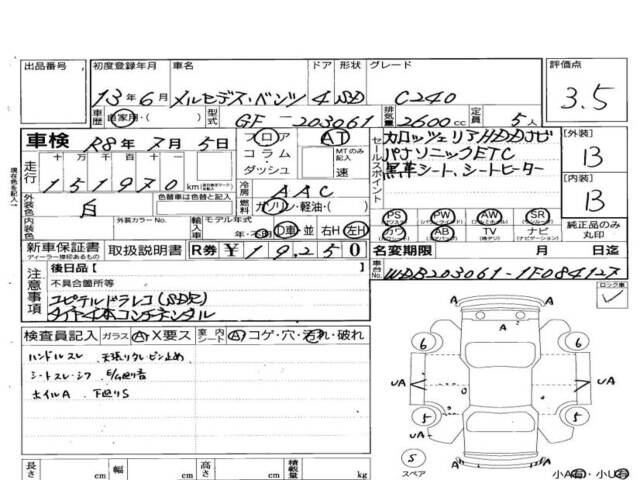 出品番号 初度登録年月 車名 ドア 形状 グレード 評価点
13年6月 メルセデス・ベンツ 4 SD C240 3.5
車歴 自家用・( ) 型式 GF-203061 排気量 2600cc 定員 5人
車検 R8年7月5日 フロア AT セールスポイント カロッツェリアHDDナビ [外装]
コラム MTのみ記入 パナソニックETC 13
ダッシュ 速 黒革シート、シートヒーター
走行 十万 万 千 百 十 一
151970 km 冷房 AAC [内装]
外装色 白 色替車は色替と記入 燃料 ガソリン・軽油・( ) 13
PS PW AW SR
内装色 外装カラーNo. 輸入車 モデル年式 純正品のみ丸印
年・不明 D車・並 右H 左H カワ AB TV ナビ
新車保証書 取扱説明書 R券 ¥19250 名変期限 月 日迄
ディーラー捺印あるもの
注意事項 後日品 [ ] 車台No. WDB203061-1F084127
不具合箇所等 ロック車
コムテルドラレコ(SDR)
タイヤ4本コンチネンタル
検査員記入 ガラス A・X要ス 室内シート A コゲ・穴・汚れ・破れ
ハンドルスレ 天張リクレピン止め
シートスレ・シワ E/G廻り音
ホイルA 下廻りS
長さ cm 幅 cm 高さ cm 積載量 kg
A
A A
6 6
UA UA
5 5
UA
A A
5
スペア 小A有・小U有